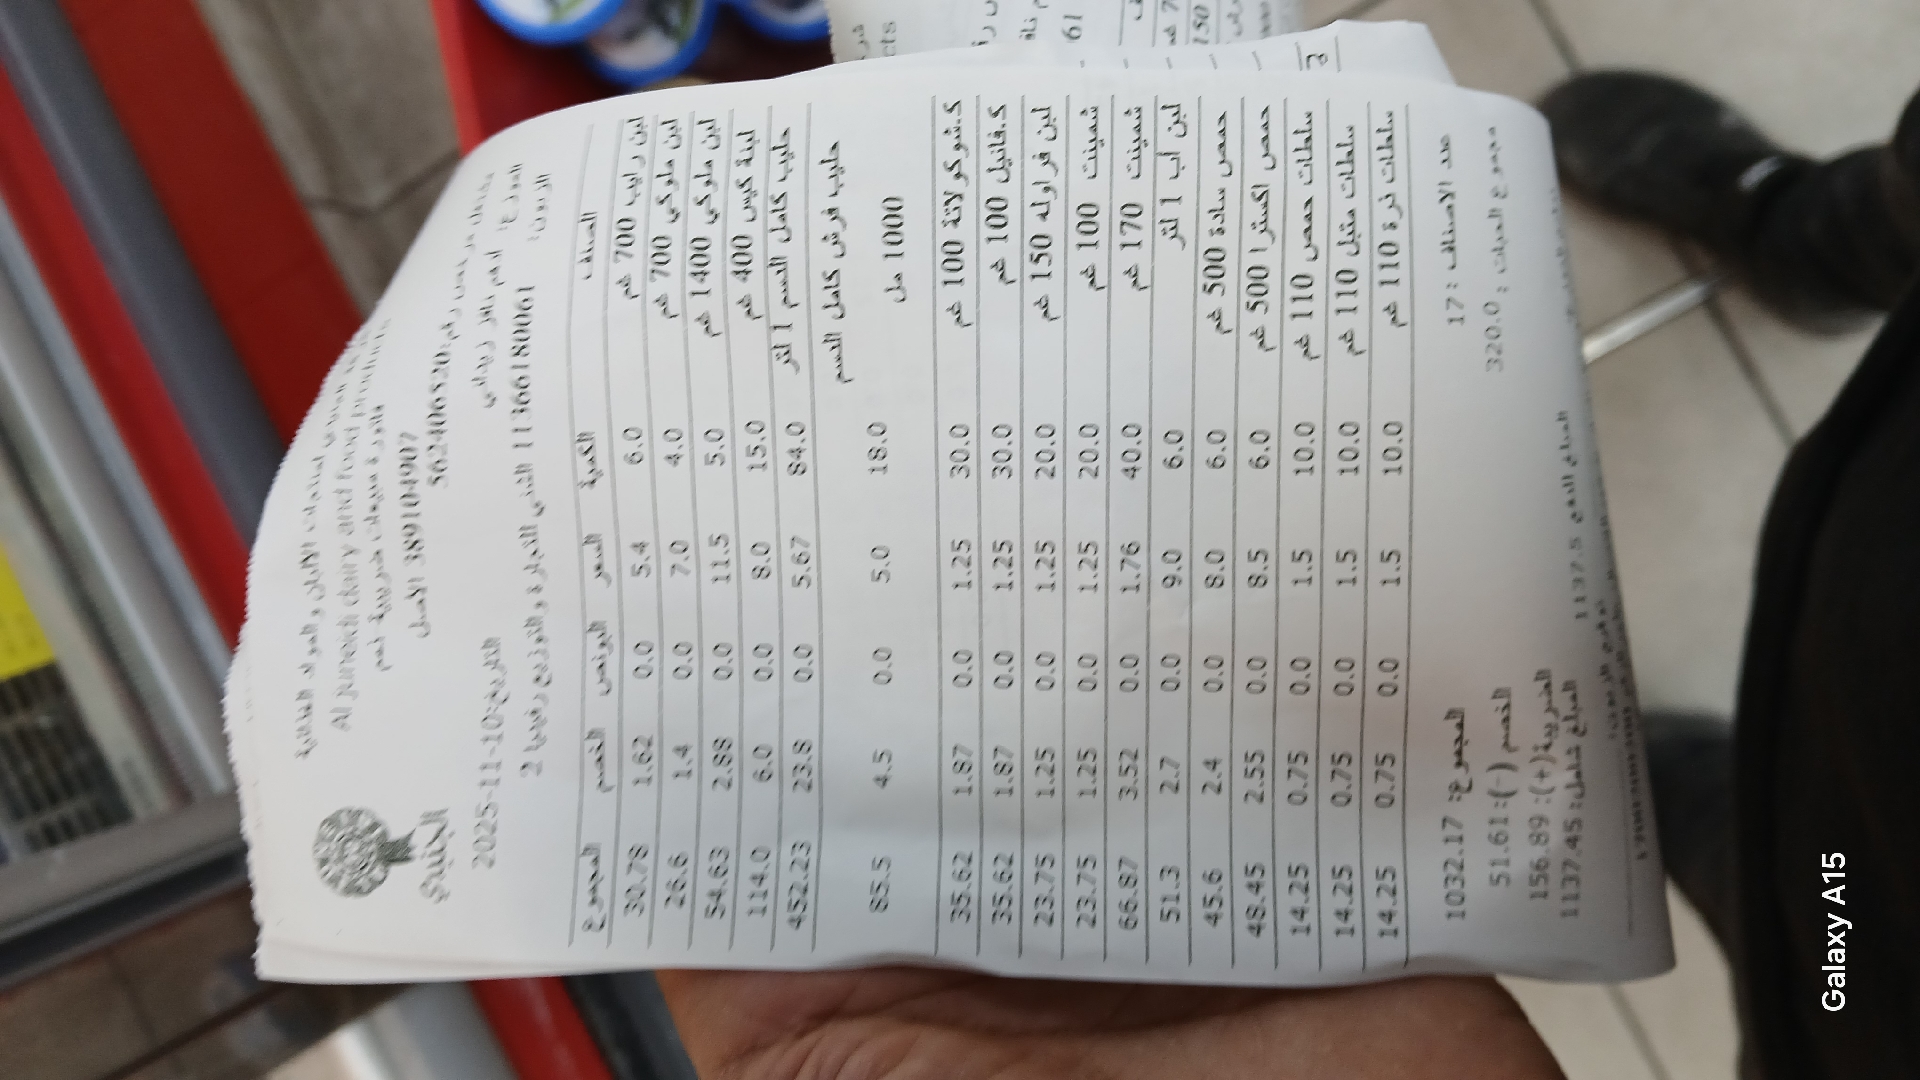 الجنيدي
Al Juneidi dairy and food products
فاتورة مبيعات ضريبية رقم
38910490 الاصل
562406820
التاريخ:2025-11-10
الموزع:
الزبون: 1136618006 للتجارة والتوزيع رفيديا 2
الصنف الكمية السعر البونص الخصم المجموع
لبن رايب 700 غم 6.0 5.4 0.0 1.62 30.78
لبن ملوكي 700 غم 4.0 7.0 0.0 1.4 26.6
لبن ملوكي 1400 غم 5.0 11.5 0.0 2.88 54.63
لبنة كيس 400 غم 15.0 8.0 0.0 6.0 114.0
حليب كامل الدسم 1 لتر 84.0 5.67 0.0 23.8 452.23
حليب فرش كامل الدسم
1000 مل 18.0 5.0 0.0 4.5 85.5
ك.شوكولاتة 100 غم 30.0 1.25 0.0 1.87 35.62
ك.فانيل 100 غم 30.0 1.25 0.0 1.87 35.62
لبن فراوله 150 غم 20.0 1.25 0.0 1.25 23.75
شمينت 100 غم 20.0 1.25 0.0 1.25 23.75
شمينت 170 غم 40.0 1.76 0.0 3.52 66.87
لبن اب 1 لتر 6.0 9.0 0.0 2.7 51.3
حمص سادة 500 غم 6.0 8.0 0.0 2.4 45.6
حمص اكسترا 500 غم 6.0 8.5 0.0 2.55 48.45
سلطات حمص 110 غم 10.0 1.5 0.0 0.75 14.25
سلطات متبل 110 غم 10.0 1.5 0.0 0.75 14.25
سلطات ذرة 110 غم 10.0 1.5 0.0 0.75 14.25
عدد الاصناف : 17 المجموع: 1032.17
مجموع الحبات : 320.0 الخصم (-):51.61
الضريبة(+):156.89
المبلغ شامل: 1137.45
المبلغ الدفع 1137.5
Galaxy A15